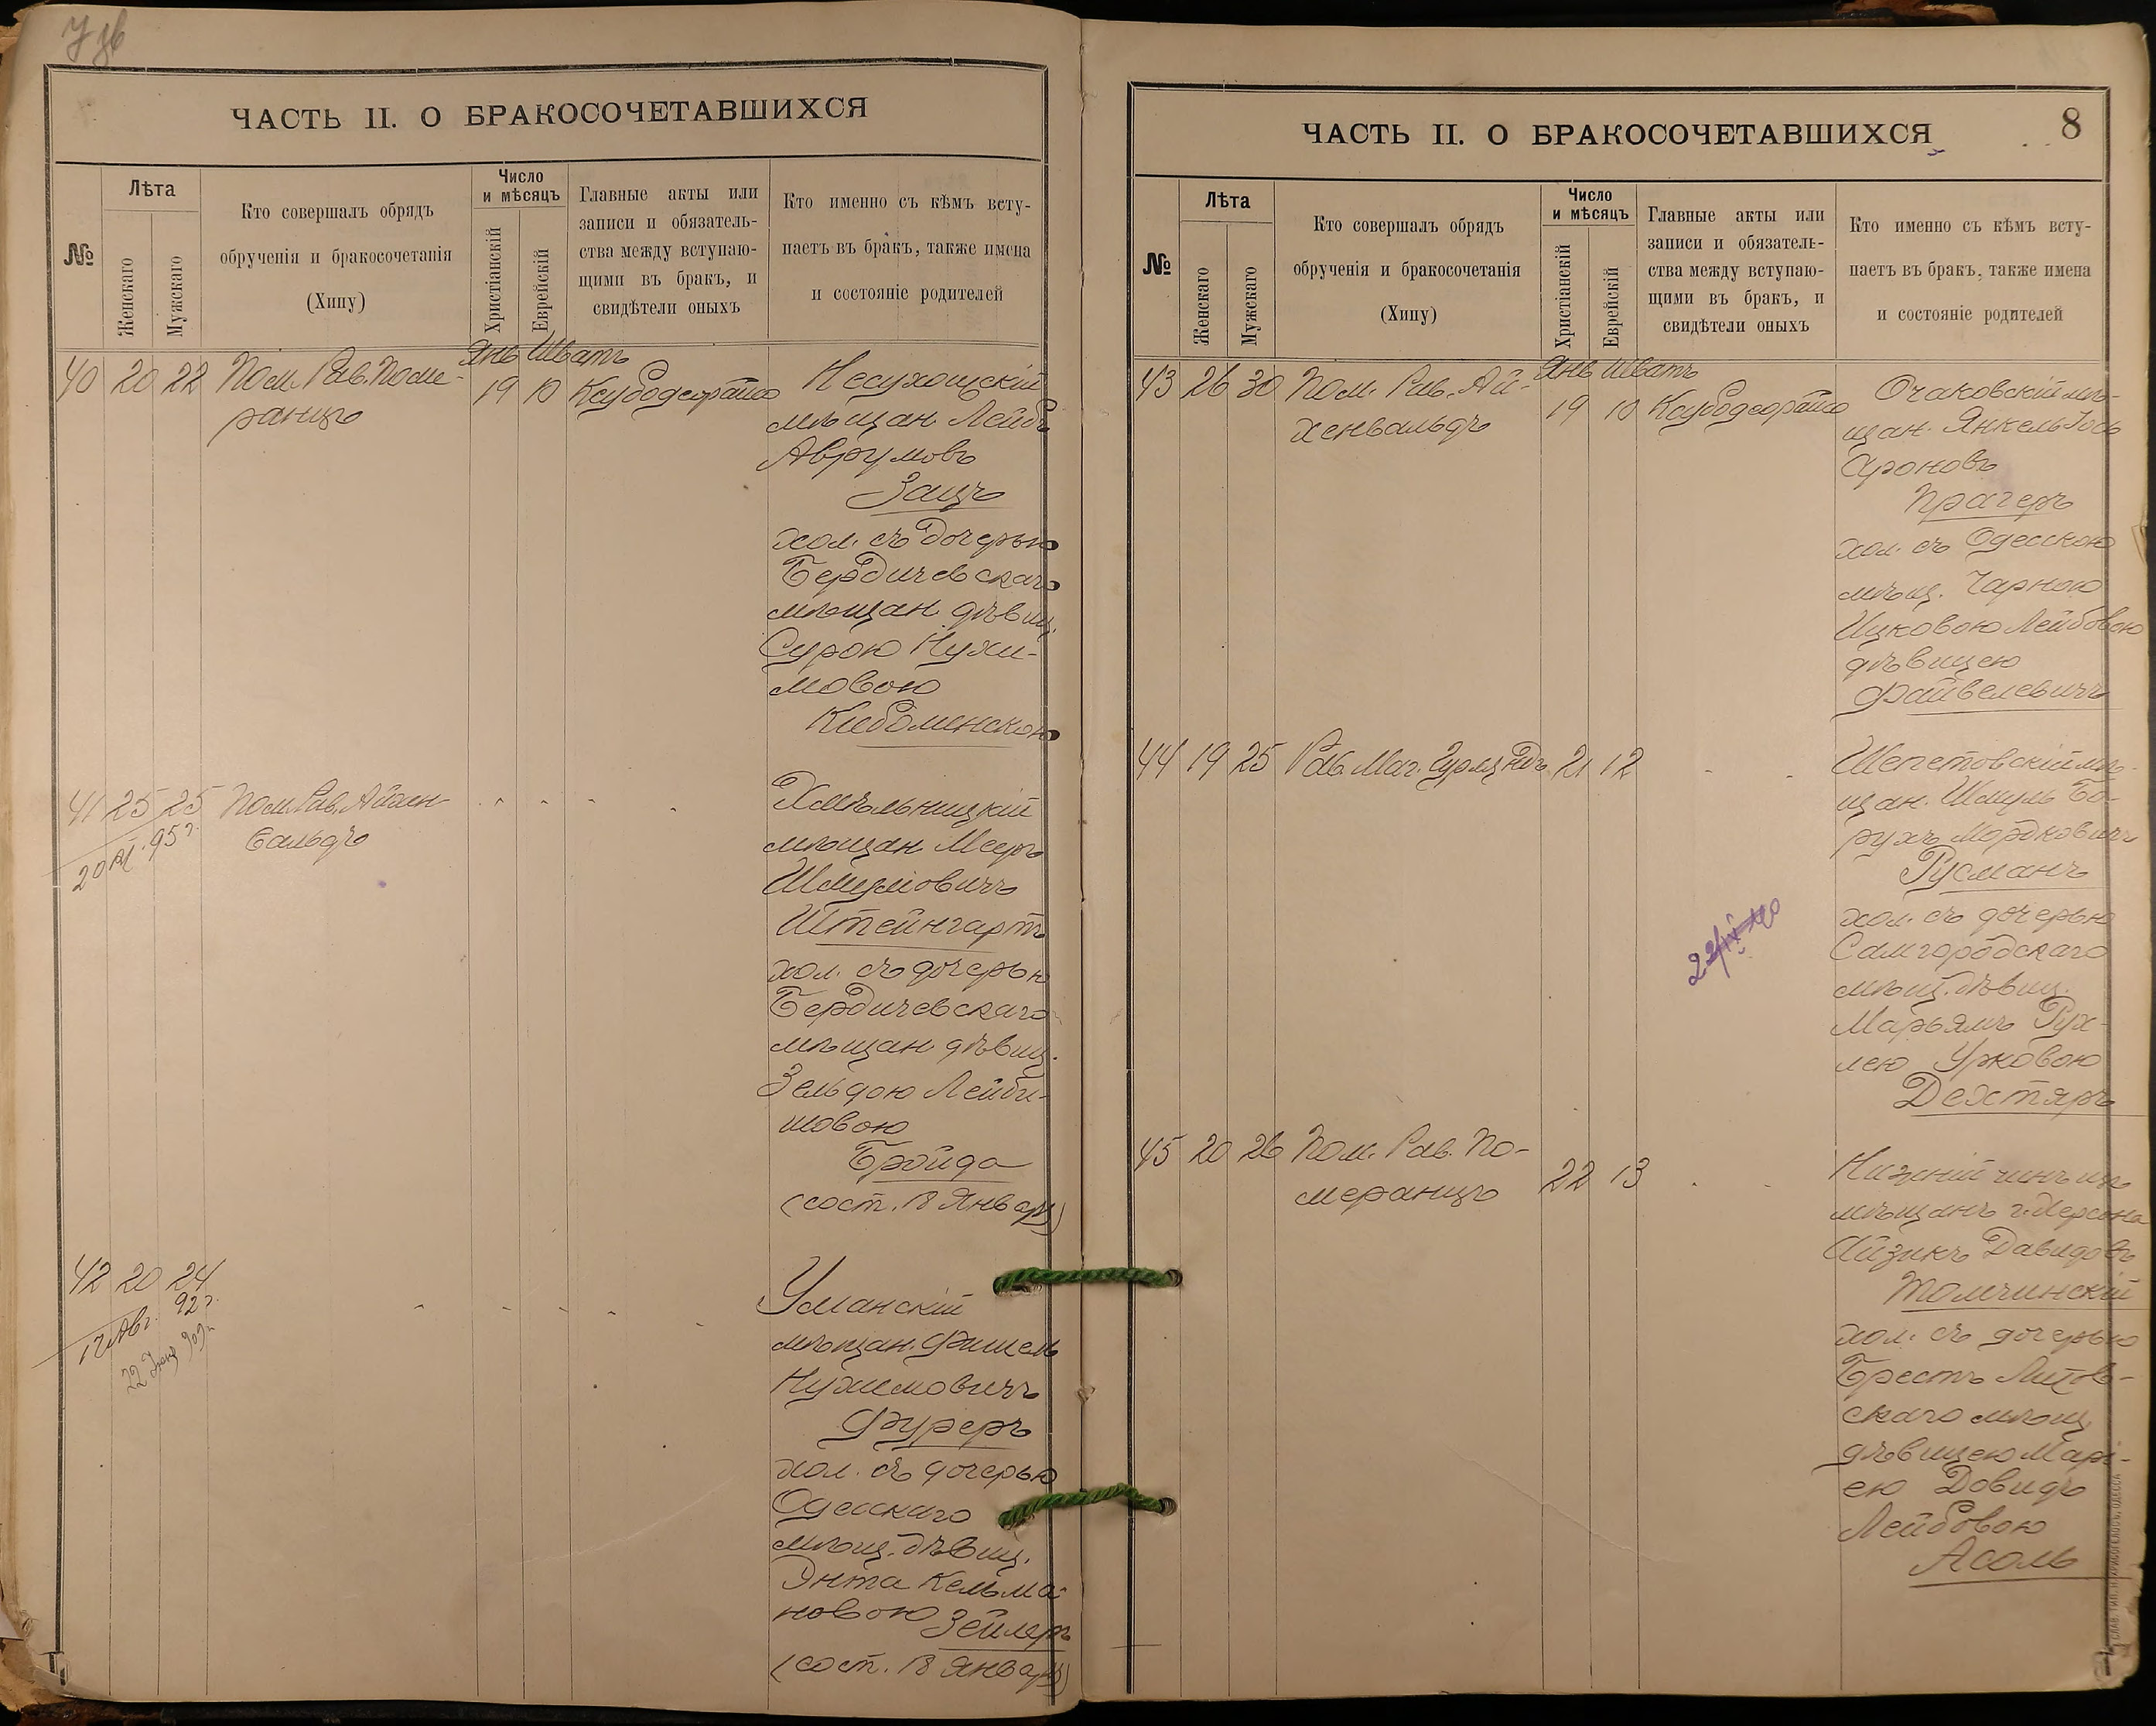 ЧАСТЬ II. О БРАКОСОЧЕТАВШИХСЯ
№
Лѣта
Женскаго
Мужскаго
Кто совершалъ обрядъ
обрученія и бракосочетанія
(Хипу)
Число
и мѣсяцъ
Христіанскій
Еврейскій
Главные акты или
записи и обязатель-
ства между вступаю-
щими въ брак, и
свидѣтели оныхъ
Кто именно съ кѣмъ всту-
паетъ въ бракъ, также имена
и состояніе родителей
Янв Шватъ
40 20 22 Пом. Рав. Поме-
ранцъ
19 10
Несухоцскій
мѣщан Лейбъ
Аврумовъ
Зацъ
хол. съ дочерью
Бердичевскаго
мѣщан. дѣвиц.
Сурою Нухи-
мовою
41 25 25 Пом. Рав. Айхен-
вальдъ
95 г.
Хмѣльницкій
мѣщан Мееръ
Шмулiовичъ
Штейнгартъ
хол. съ дочерью
Бердичевскаго
мѣщан дѣвиц.
Зельдою Лейби-
шовою
Бройда
(сост. 18 Января)
42 20 24
17 Авг. 92 г.
22
Уманскій
мѣщан. Фишель
Нухимовичъ
Фуреръ
хол. съ дочерью
Одесскаго
мѣщ. дѣвиц.
Энта Кельма-
новою Зейлеръ
(сост. 18 Января)
ЧАСТЬ II. О БРАКОСОЧЕТАВШИХСЯ
8
№
Лѣта
Женскаго
Мужскаго
Кто совершалъ обрядъ
обрученія и бракосочетанія
(Хипу)
Число
и мѣсяцъ
Христіанскій
Еврейскій
Главные акты или
записи и обязатель-
ства между вступаю-
щими въ брак, и
свидѣтели оныхъ
Кто именно съ кѣмъ всту-
паетъ въ бракъ, также имена
и состояніе родителей
Янв Шватъ
43 26 30 Пом. Рав. Ай-
хенвальдъ
19 10
Очаковскій мѣ-
щан. Янкель Іось
Ароновъ
Прагеръ
хол. съ Одесскою
мѣщ. Чарною
Ицковою Лейбовою
дѣвицею
Файвелевичъ
44 19 25 Рав. Маг. Гурляндъ 21 12
Шепетовскій мѣ-
щан. Шмуль Бо-
рухъ Мордковичъ
Русманъ
хол. съ дочерью
Самгородскаго
мѣщ. дѣвиц.
Марьямъ Рух-
лею Урковою
Дехтяръ
45 20 26 Пом. Рав. По-
меранцъ
22 13
Нижній чинъ изъ
мѣщанъ г. Херсона
Айзикъ Давидовъ
Томчинскій
хол. съ дочерью
Брестъ Литов-
скаго мѣщ.
дѣвицею Марі-
ею Довидъ
Лейбовою
Асоль